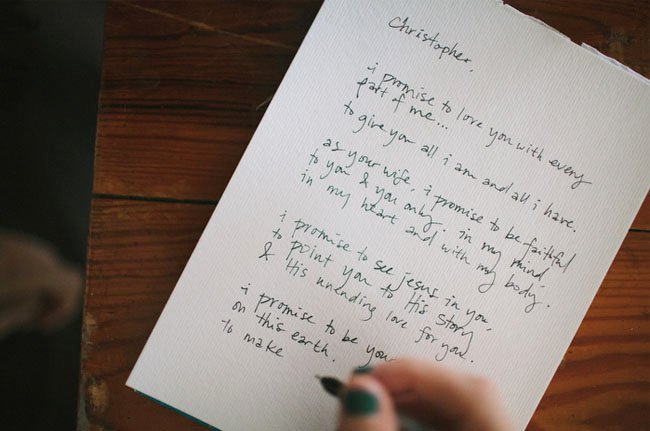 Christopher,
i promise to love you with every
part of me...
to give you all i am and all i have.
as your wife, i promise to be faithful
to you & you only. in my mind
in my heart and with my body.
i promise to see jesus in you,
to point you to His story
& His unending love for you.
i promise to be your
on this earth.
to make